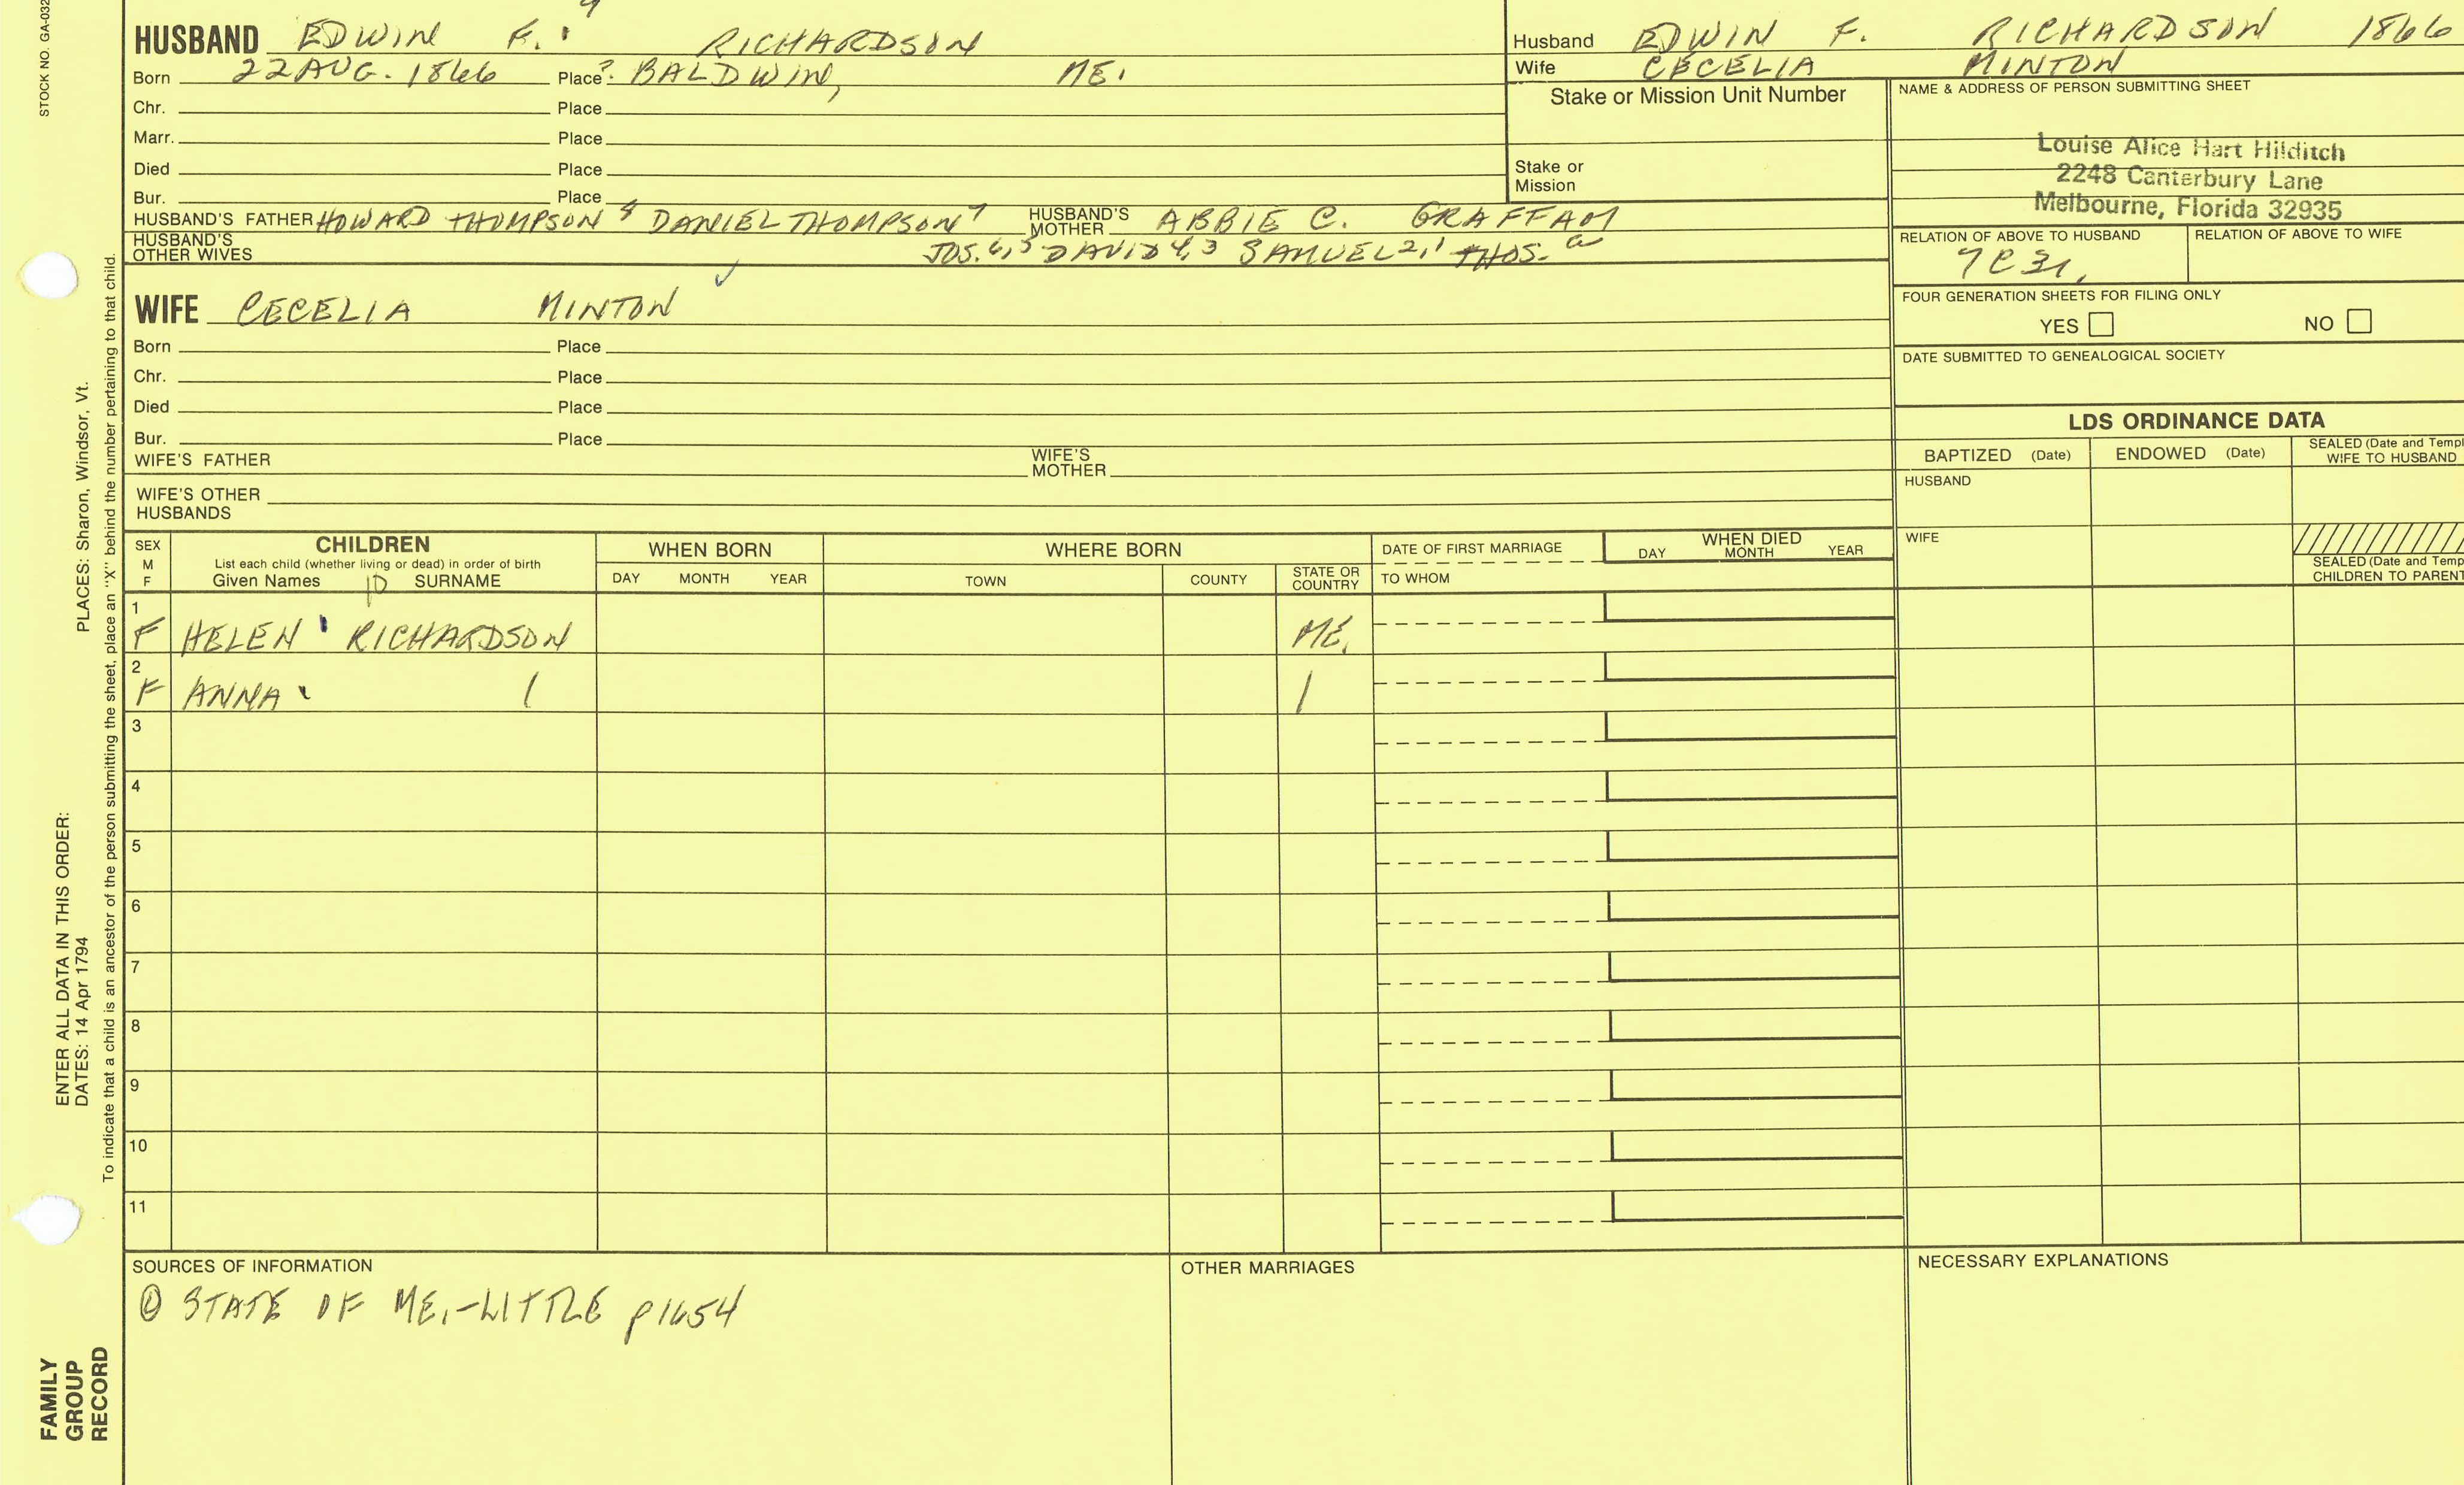 STOCK NO. GA-032
HUSBAND EDWIN F. RICHARDSON
Born 22 AUG. 1866 Place ? BALDWIN, ME.
Chr. Place
Marr. Place
Died Place
Bur. Place
HUSBAND'S FATHER HOWARD THOMPSON 8 DANIEL THOMPSON 7 HUSBAND'S MOTHER ABBIE C. GRAFFAM
HUSBAND'S OTHER WIVES JOS. 6,5 DAVID 4,3 SAMUEL 2,1 THOS. a
Husband EDWIN F. RICHARDSON 1866
Wife CECELIA MINTON
Stake or Mission Unit Number
Stake or
Mission
NAME & ADDRESS OF PERSON SUBMITTING SHEET
Louise Alice Hart Hilditch
2248 Canterbury Lane
Melbourne, Florida 32935
RELATION OF ABOVE TO HUSBAND RELATION OF ABOVE TO WIFE
7C3r.
FOUR GENERATION SHEETS FOR FILING ONLY
YES NO
DATE SUBMITTED TO GENEALOGICAL SOCIETY
WIFE CECELIA MINTON
Born Place
Chr. Place
Died Place
Bur. Place
WIFE'S FATHER WIFE'S MOTHER
WIFE'S OTHER
HUSBANDS
LDS ORDINANCE DATA
BAPTIZED (Date) ENDOWED (Date) SEALED (Date and Templ
WIFE TO HUSBAND
HUSBAND
WIFE
SEALED (Date and Temp
CHILDREN TO PARENT
SEX
M
F
CHILDREN
List each child (whether living or dead) in order of birth
Given Names SURNAME
WHEN BORN
DAY MONTH YEAR
WHERE BORN
TOWN COUNTY STATE OR COUNTRY
DATE OF FIRST MARRIAGE
TO WHOM
WHEN DIED
DAY MONTH YEAR
1
F HELEN RICHARDSON ME.
2
F ANNA
3
4
5
6
7
8
9
10
11
SOURCES OF INFORMATION
① STATE OF ME.-LITTLE p1654
OTHER MARRIAGES
NECESSARY EXPLANATIONS
ENTER ALL DATA IN THIS ORDER:
DATES: 14 Apr 1794 PLACES: Sharon, Windsor, Vt.
To indicate that a child is an ancestor of the person submitting the sheet, place an "X" behind the number pertaining to that child.
FAMILY
GROUP
RECORD